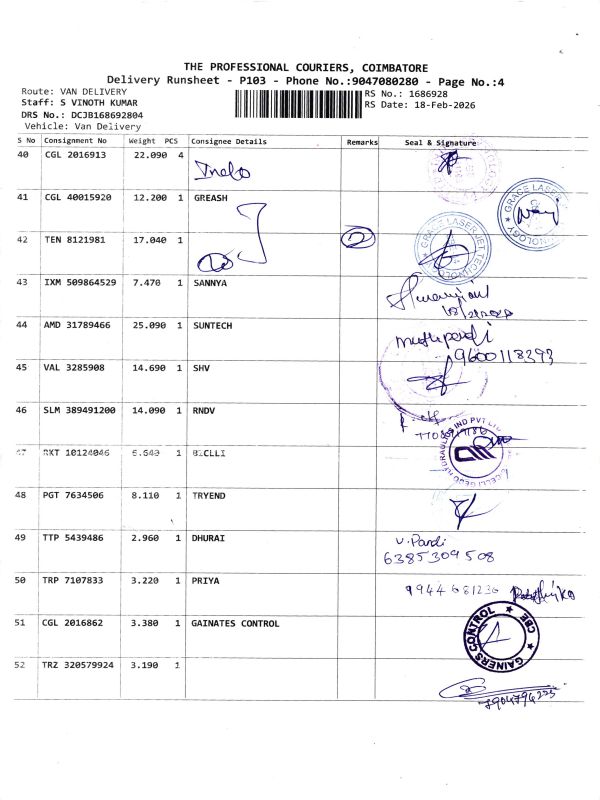 THE PROFESSIONAL COURIERS, COIMBATORE
Delivery Runsheet - P103 - Phone No.:9047080280 - Page No.:4
Route: VAN DELIVERY
RS No.: 1686928
Staff: S VINOTH KUMAR
RS Date: 18-Feb-2026
DRS No.: DCJB168692804
Vehicle: Van Delivery
S No Consignment No Weight PCS Consignee Details Remarks Seal & Signature
40 CGL 2016913 22.090 4
41 CGL 40015920 12.200 1 GREASH
GRACE LASER
42 TEN 8121981 17.040 1 2
GRACE LASERJET TECHNOLOGY
43 IXM 509864529 7.470 1 SANNYA
44 AMD 31789466 25.090 1 SUNTECH
9600118393
45 VAL 3285908 14.690 1 SHV
46 SLM 389491200 14.090 1 RNDV
47 RKT 10124046 6.640 1 BZCLLI
IND PVT LTD
48 PGT 7634506 8.110 1 TRYEND
49 TTP 5439486 2.960 1 DHURAI
V. Pandi
6385309508
50 TRP 7107833 3.220 1 PRIYA
9944681236
51 CGL 2016862 3.380 1 GAINATES CONTROL
GAINERS CONTROL CBE
52 TRZ 320579924 3.190 1
7904794225